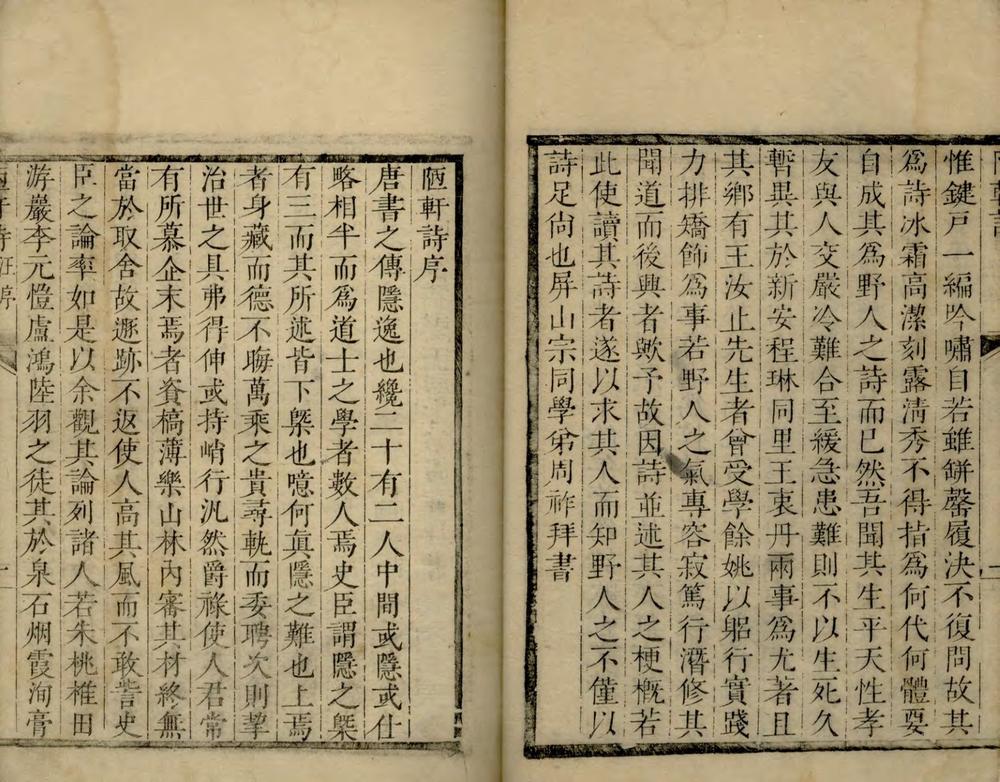 惟鍵戸一編吟嘯自若雖缾罄履決不復問故其
爲詩冰霜高潔刻露清秀不得指爲何代何體要
自成其爲野人之詩而已然吾聞其生平天性孝
友與人交嚴冷難合至緩急患難則不以生死久
暫異其於新安程琳同里王衷丹兩事爲尤著且
其鄉有王汝止先生者曾受學餘姚以躬行實踐
力排矯飾爲事若野人之氣專容寂篤行潛修其
聞道而後興者歟予故因詩並述其人之梗槪若
此使讀其詩者遂以求其人而知野人之不僅以
詩足尙也屏山宗同學弟周祚拜書
陋軒詩序
唐書之傳隱逸也纔二十有二人中間或隱或仕
略相半而爲道士之學者數人焉史臣謂隱之槩
有三而其所述皆下槩也噫何眞隱之難也上焉
者身藏而德不晦萬乘之貴尋軌而委聘次則挈
治世之具弗得伸或持峭行汎然爵祿使人君常
有所慕企末焉者資槁薄樂山林內審其材終無
當於取舍故逃跡不返使人高其風而不敢訾史
臣之論率如是以余觀其論列諸人若朱桃椎田
游巖李元愷盧鴻陸羽之徒其於泉石烟霞洵膏